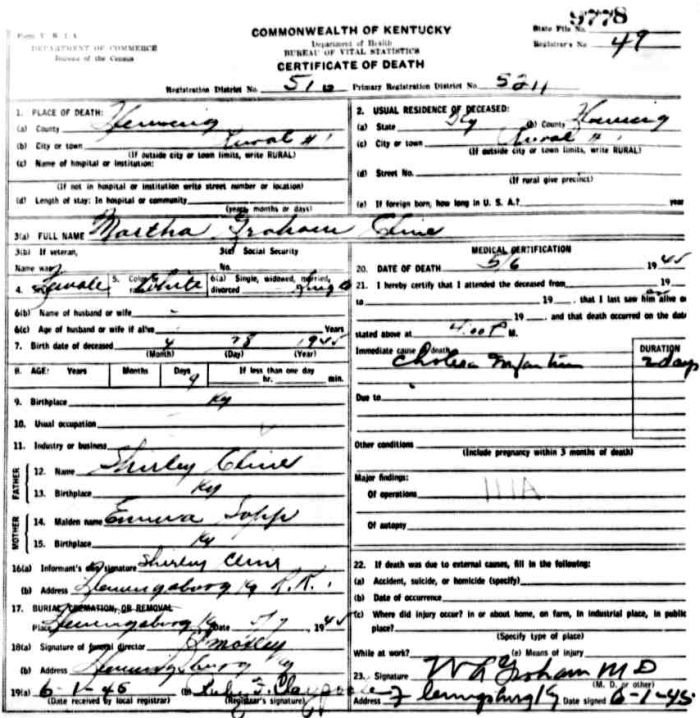 9778
Form V. S. 1-A
COMMONWEALTH OF KENTUCKY
State File No.
DEPARTMENT OF COMMERCE
Bureau of the Census
Department of Health
BUREAU OF VITAL STATISTICS
Registrar's No. 49
CERTIFICATE OF DEATH
Registration District No. 510 Primary Registration District No. 5211
1. PLACE OF DEATH:
(a) County Fleming
(b) City or town Rural # 1
(If outside city or town limits, write RURAL)
(c) Name of hospital or institution:
(If not in hospital or institution write street number or location)
(d) Length of stay: In hospital or community
(years, months or days)
2. USUAL RESIDENCE OF DECEASED:
(a) State Ky (b) County Fleming
(c) City or town Rural # 1
(If outside city or town limits, write RURAL)
(d) Street No.
(If rural give precinct)
(e) If foreign born, how long in U. S. A.? years
3(a) FULL NAME Martha Graham Cline
3(b) If veteran,
Name war
3(c) Social Security
No.
4. Sex Female 5. Color or race White 6(a) Single, widowed, married, divorced Single
6(b) Name of husband or wife -
6(c) Age of husband or wife if alive Years
7. Birth date of deceased 4 28 1945
(Month) (Day) (Year)
8. AGE: Years Months Days If less than one day
9 hr. min.
9. Birthplace Ky
10. Usual occupation
11. Industry or business
FATHER
12. Name Shirley Cline
13. Birthplace Ky
MOTHER
14. Maiden name Emma Sapp
15. Birthplace Ky
16(a) Informant's signature Shirley Cline
(b) Address Flemingsburg Ky R.R. 1
17. BURIAL, CREMATION, OR REMOVAL
Place Flemingsburg Ky 5/7 1945
18(a) Signature of funeral director
(b) Address Flemingsburg Ky
19(a) 6-1-45 (b)
(Date received by local registrar) (Registrar's signature)
MEDICAL CERTIFICATION
20. DATE OF DEATH 5/6 1945
21. I hereby certify that I attended the deceased from
19 to 19 , that I last saw him alive on
19 , and that death occurred on the date
stated above at 4:00 P M.
Immediate cause of death DURATION
Cholera Infantum 2 days
Due to
Other conditions
(Include pregnancy within 3 months of death)
Major findings:
Of operations 111A
Of autopsy
22. If death was due to external causes, fill in the following:
(a) Accident, suicide, or homicide (specify)
(b) Date of occurrence
(c) Where did injury occur? in or about home, on farm, in industrial place, in public
place?
(Specify type of place)
While at work? (e) Means of injury
23. Signature W L Graham M D
(M. D. or other)
Address Flemingsburg Ky Date signed 6-1-45